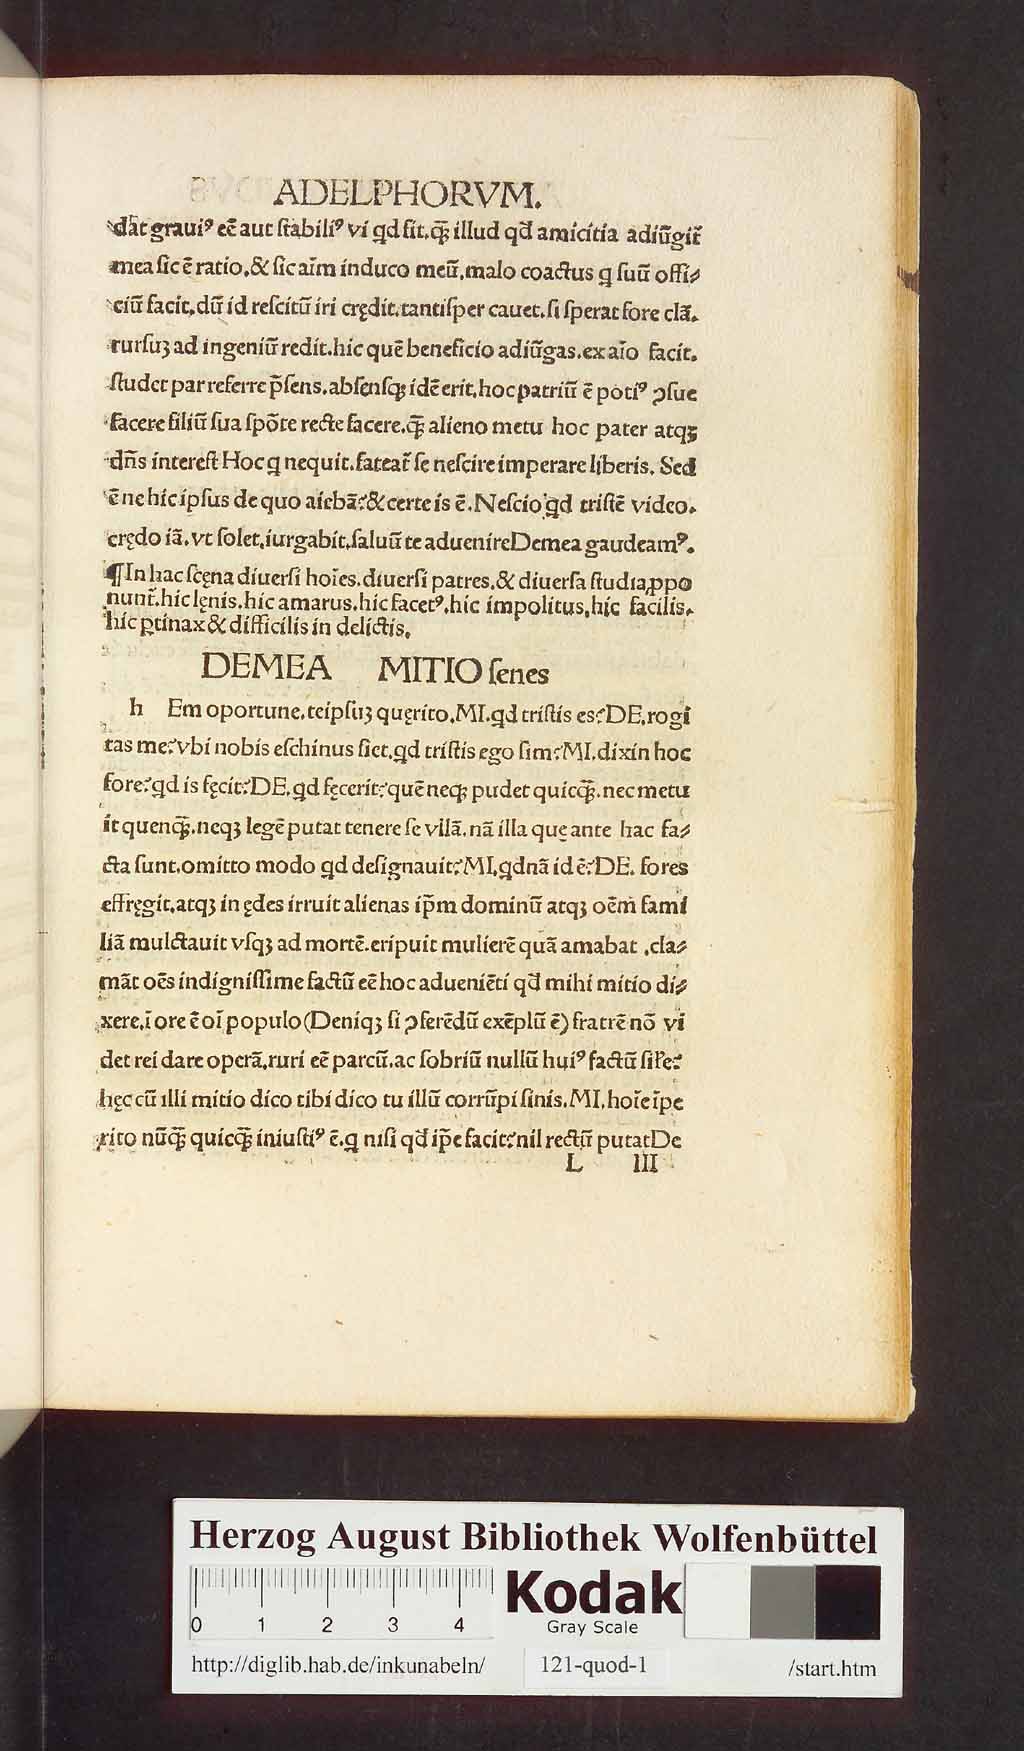 ADELPHORVM.
dāt graui⁹ eē aut ſtabili⁹ vi qd ſit. qꝫ̄ illud qd̄ amicitia adiūgit̄
mea ſic ē ratio, & ſic aīm induco meū, malo coactus q ſuū offi⸗
ciū facit, dū id reſcitū iri crędit, tantiſper cauet, ſi ſperat fore clā.
rurſuꝫ ad ingeniū redit. hic quē beneficio adiūgas. ex aīo facit.
ſtudet par referre p̄ſens. abſenſqꝫ idē erit, hoc patriū ē poti⁹ ꝯſue
facere filiū ſua ſpōte recte facere. qꝫ̄ alieno metu hoc pater atqꝫ
dn̄s intereſt Hoc q nequit. fateat̄ ſe neſcire imperare liberis. Sed
ē ne hic ipſus de quo aiebā? & certe is ē. Neſcio qd triſtē video.
crędo iā. vt ſolet, iurgabit. ſaluū te aduenire Demea gaudeam⁹.
¶In hac ſcęna diuerſi hoīes. diuerſi patres. & diuerſa ſtudia ꝓpo
nunt̄. hic lęnis. hic amarus. hic facet⁹. hic impolitus, hic facilis.
hic ꝑtinax & difficilis in delictis.
DEMEA MITIO ſenes
h Em oportune. teipſuꝫ quęrito. MI. qd triſtis es? DE. rogi
tas me? vbi nobis eſchinus ſiet. qd triſtis ego ſim? MI. dixin hoc
fore? qd is fęcit? DE. qd fęcerit? quē neqꝫ pudet quicqꝫ̄. nec metu
it quenqꝫ̄. neqꝫ legē putat tenere ſe vllā. nā illa quę ante hac fa⸗
cta ſunt. omitto modo qd deſignauit? MI. qdnā id ē? DE. fores
effręgit. atqꝫ in ędes irruit alienas ip̄m dominū atqꝫ oēm̄ fami
liā mulctauit vſqꝫ ad mortē. eripuit mulierē quā amabat .cla⸗
māt oēs indigniſſime factū eē hoc adueniēti qd̄ mihi mitio di⸗
xere. ī ore ē oī populo (Deniqꝫ ſi ꝯferēdū exēplū ē) fratrē nō vi
det rei dare operā. ruri eē parcū. ac ſobriū nullū hui⁹ factū ſil̄e?
hęc cū illi mitio dico tibi dico tu illū corrūpi ſinis. MI. hoīe īpe
rito nūqꝫ̄ quicqꝫ̄ iniuſti⁹ ē. q niſi qd̄ ip̄e facit? nil rectū putat De
L III
Herzog August Bibliothek Wolfenbüttel
0 1 2 3 4
Kodak
Gray Scale
http://diglib.hab.de/inkunabeln/ 121-quod-1 /start.htm